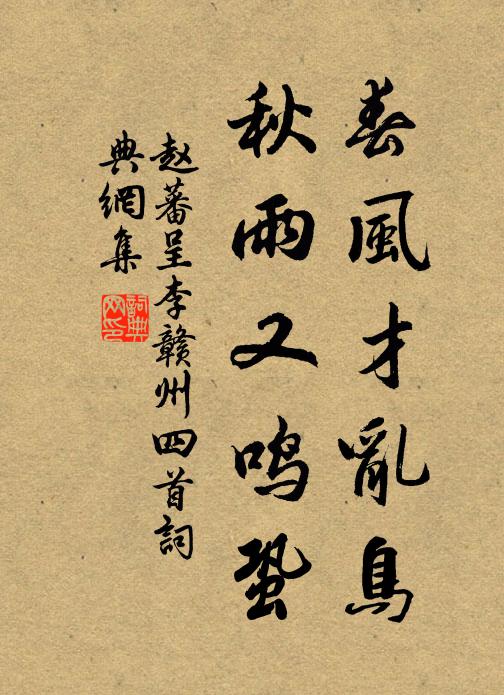 春風才亂鳥
秋雨又鸣蛩
赵蕃呈李赣州四首詞
典網集
詞典网印